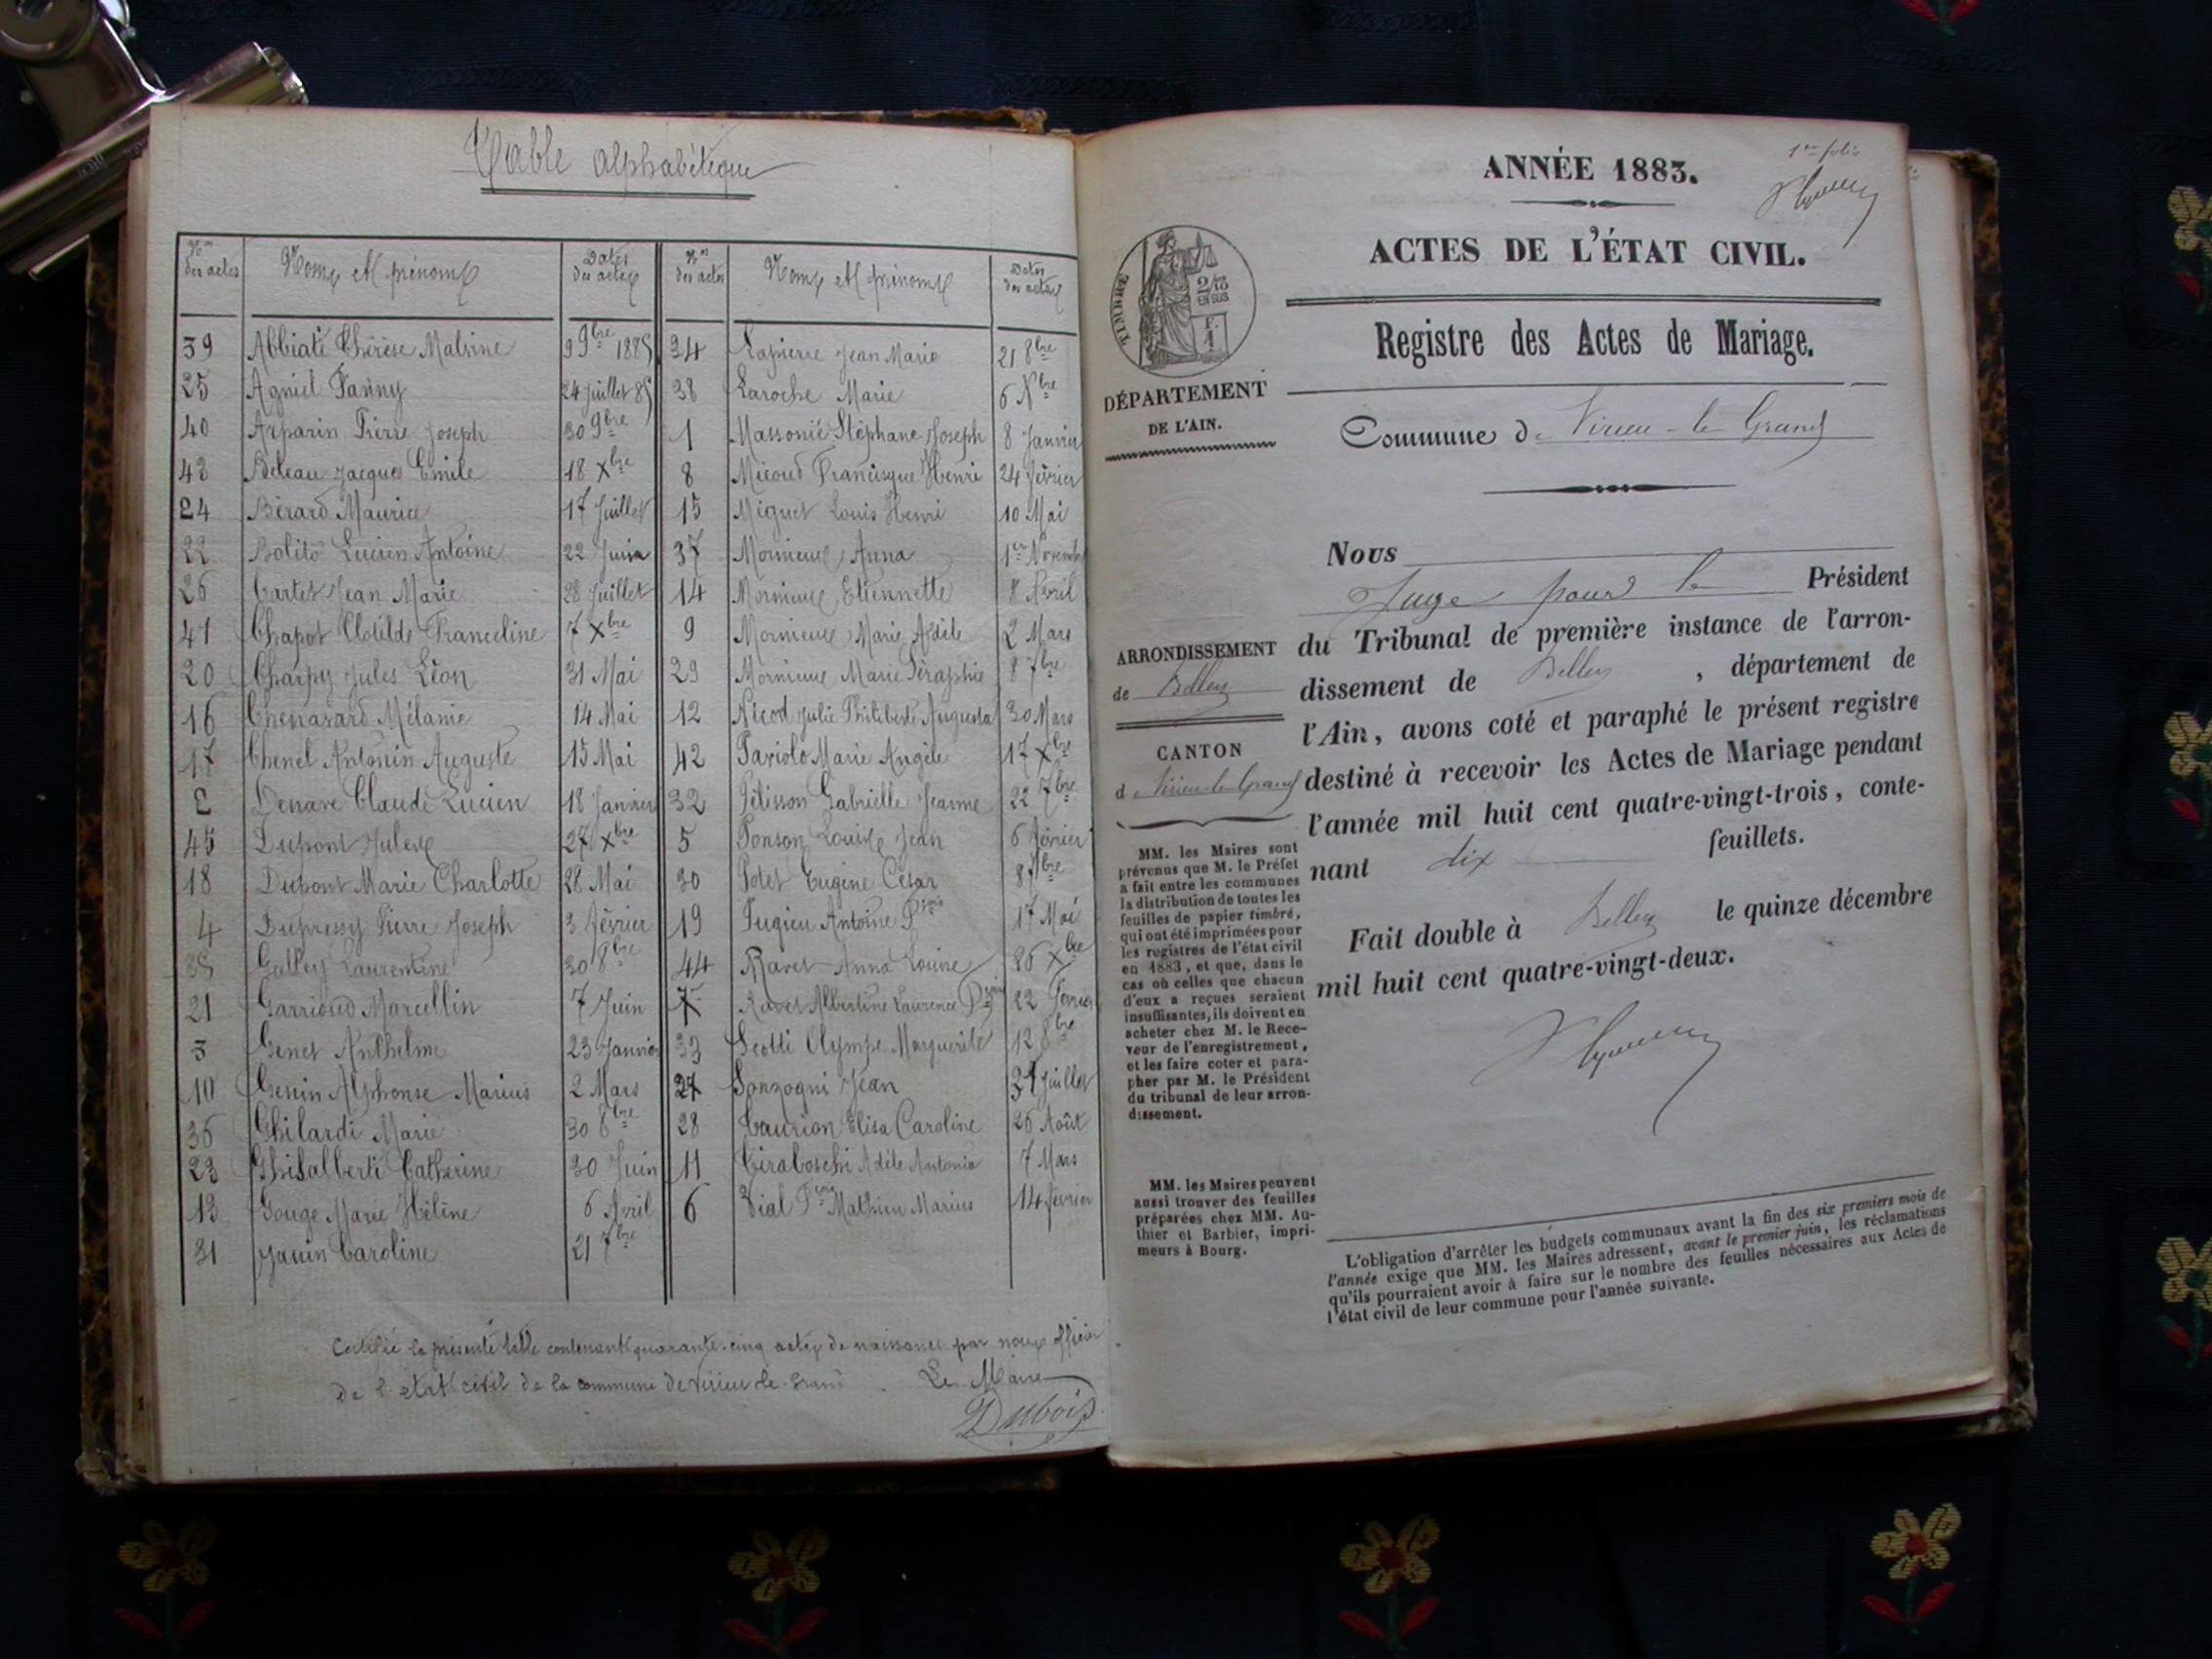 Table alphabétique
Nos des actes
Noms et prénoms
Dates des actes
Nos des actes
Noms et prénoms
Dates des actes
39 Abbiati Thérèse Malvine 9 9bre 1885
25 Agniel Fanny 24 Juillet 85
40 Arparin Pierre Joseph 30 9bre
43 Beleau Jacques Emile 18 Xbre
24 Bérard Maurice 17 Juillet
22 Lucien Antoine 22 Juin
26 Cartet Jean Marie 28 Juillet
41 Chapot Clotilde Franceline 7 Xbre
20 Charpy Jules Léon 31 Mai
16 Chenavard Mélanie 14 Mai
17 Chenel Antonin Auguste 15 Mai
2 Denave Claude Lucien 18 Janvier
45 Dupont Jules 27 Xbre
18 Dupont Marie Charlotte 28 Mai
4 Dupressy Pierre Joseph 3 février
35 Galley Laurentine 30 8bre
21 Garrioud Marcellin 7 Juin
3 Genet Anthelme 23 Janvier
10 Genin Alphonse Marius 2 Mars
36 Ghilardi Marie 30 8bre
23 Ghisalberti Catherine 30 Juin
13 Gouge Marie Hélène 6 Avril
31 Janin Caroline 21 7bre
34 Lapierre Jean Marie 21 8bre
38 Laroche Marie 6 Nbre
1 Massonié Stéphane Joseph 8 Janvier
8 Micoud Francisque Henri 24 février
15 Miguet Louis Henri 10 Mai
37 Mornieux Anna 1er Novembre
14 Mornieux Etiennette 8 Avril
9 Mornieux Marie Adèle 2 Mars
29 Mornieux Marie Séraphie 8 7bre
12 Nicod Julie Philiberte Augusta 30 Mars
42 Paviolo Marie Angèle 17 Xbre
32 Pétisson Gabrielle Jeanne 22 7bre
5 Ponson Louis Jean 6 février
30 Potet Eugène César 8 7bre
19 Pugieu Antoine 17 Mai
44 Ravet Anna Louise 26 Xbre
7 Ravet Albertine Laurence 22 Février
33 Scotti Olympe Marguerite 12 8bre
27 Sonzogni Jean 31 Juillet
28 Taurion Elisa Caroline 26 Août
11 Tiraboschi Adèle Antonia 7 Mars
6 Vial Mathieu Marius 14 février
Certifié la présente table contenant quarante-cinq actes de naissance par nous officier
de l'état civil de la commune de Virieu-le-Grand. Le Maire
Dubois
1er folio
ANNÉE 1883.
ACTES DE L'ÉTAT CIVIL.
TIMBRE
2/10
EN SUS
Registre des Actes de Mariage.
DÉPARTEMENT
DE L'AIN.
Commune de Virieu-le-Grand
Nous
Juge pour le Président
du Tribunal de première instance de l'arron-
dissement de Belley, département de
l'Ain, avons coté et paraphé le présent registre
destiné à recevoir les Actes de Mariage pendant
l'année mil huit cent quatre-vingt-trois, conte-
nant dix feuillets.
Fait double à Belley le quinze décembre
mil huit cent quatre-vingt-deux.
ARRONDISSEMENT
de Belley
CANTON
de Virieu-le-Grand
MM. les Maires sont
prévenus que M. le Préfet
a fait entre les communes
la distribution de toutes les
feuilles de papier timbré,
qui ont été imprimées pour
les registres de l'état civil
en 1883, et que, dans le
cas où celles que chacun
d'eux a reçues seraient
insuffisantes, ils doivent en
acheter chez M. le Rece-
veur de l'enregistrement,
et les faire coter et para-
pher par M. le Président
du tribunal de leur arron-
dissement.
MM. les Maires peuvent
aussi trouver des feuilles
préparées chez MM. Au-
thier et Barbier, impri-
meurs à Bourg.
L'obligation d'arrêter les budgets communaux avant la fin des six premiers mois de
l'année exige que MM. les Maires adressent, avant le premier juin, les réclamations
qu'ils pourraient avoir à faire sur le nombre des feuilles nécessaires aux Actes de
l'état civil de leur commune pour l'année suivante.